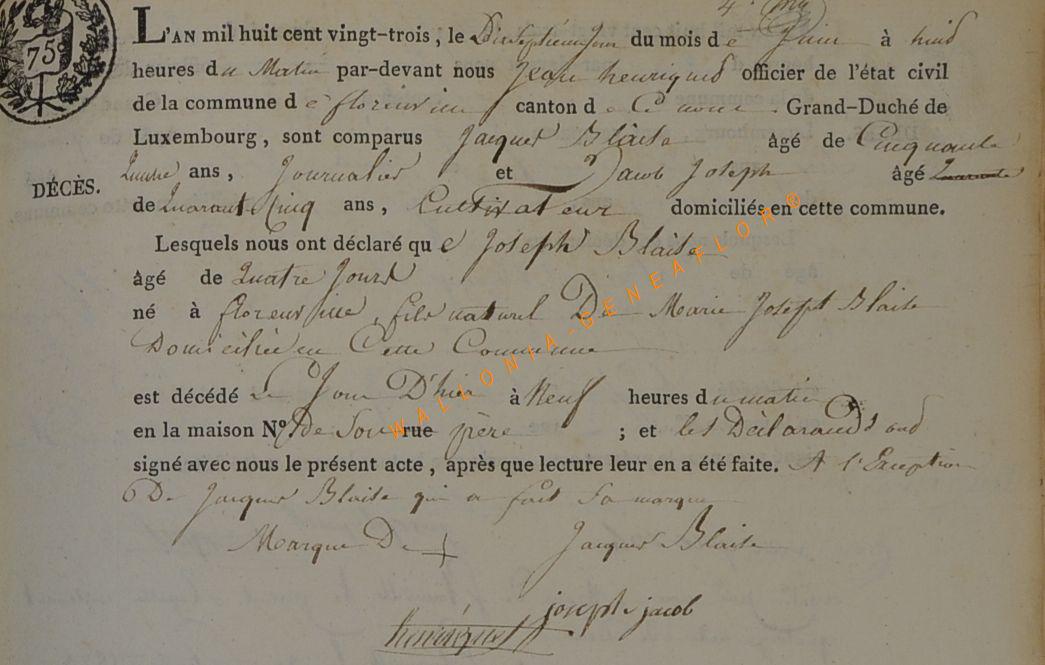 75
L'AN mil huit cent vingt-trois, le Dixseptieme Jour du mois de Juin à huit
heures du Matin par-devant nous Jean henriquet officier de l'état civil
de la commune de florenville canton de Ce nom . Grand-Duché de
Luxembourg, sont comparus Jacques Blaise âgé de Cinquante
DÉCÈS.
Quatre ans, Journalier et Jacob Joseph âgé Quarante
de Quarante Cinq ans, Cultivateur domiciliés en cette commune.
Lesquels nous ont déclaré que Joseph Blaise
âgé de Quatre Jours
né à florenville, fils naturel De Marie Joseph Blaise
Domiciliée en Cette Commune
est décédé le Jour D'hier à Neuf heures du matin
en la maison Nº de Son rue père ; et les Déclarants ont
signé avec nous le présent acte, après que lecture leur en a été faite. A l'Exception
De Jacques Blaise qui a fait Sa marque
Marque De + Jacques Blaise
joseph jacob
henriquet
WALLONIA-GENEAFLOR®